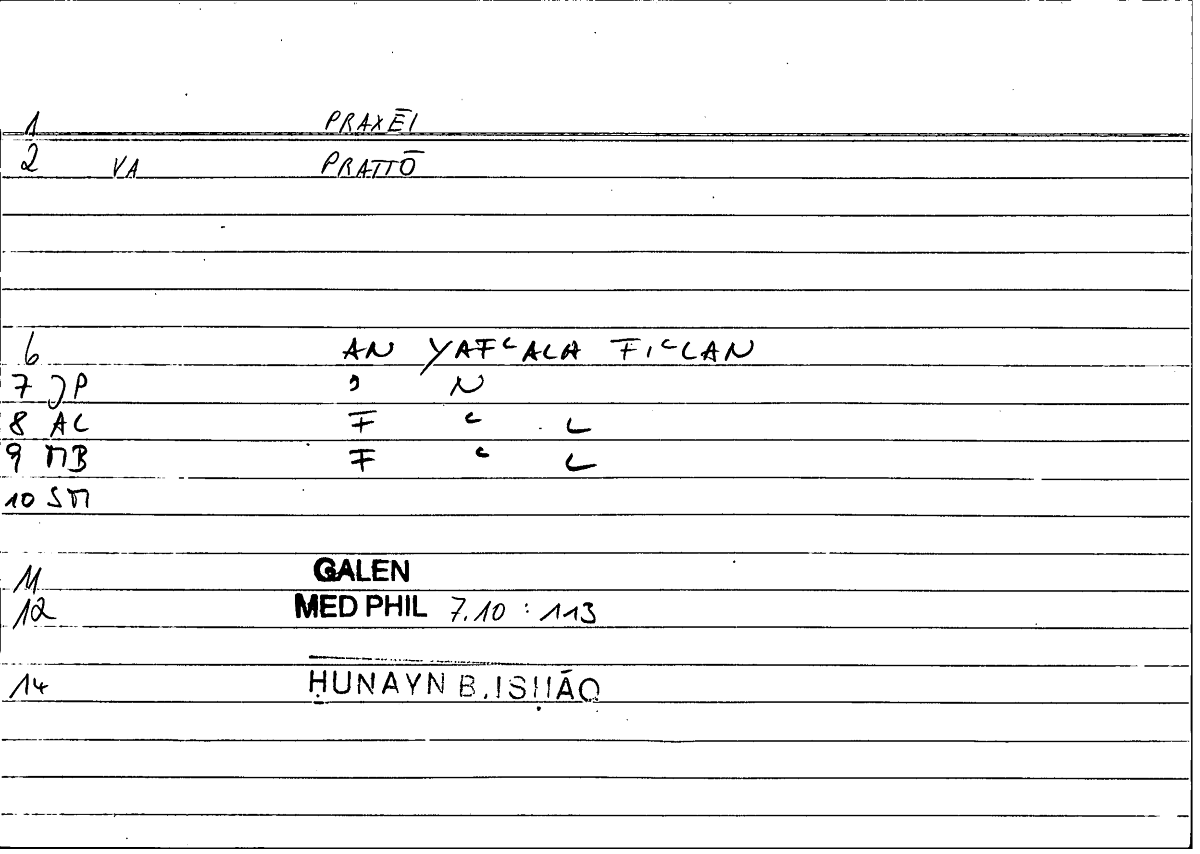 1 PRAXĒI
2 VA PRATTŌ
6 AN YAFʿALA FIʿLAN
7 JP ʾ N
8 AC F ʿ L
9 MB F ʿ L
10 SM
11 GALEN
12 MED PHIL 7.10 : 113
14 ḤUNAYN B. ISḤĀQ